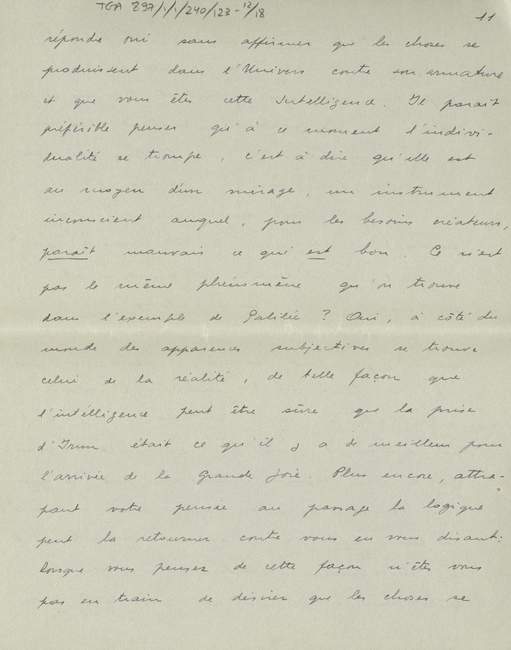 TGA 897/1/1/240/123-12/18
11
réponde oui sans affirmer que les choses se
produisent dans l'Univers contre son armature
et que vous êtes cette Intelligence. Il parait
préférible penser qu'à ce moment l'indivi-
dualité se trompe, c'est à dire qu'elle est
au moyen d'un mirage, un instrument
inconscient auquel, pour les besoins créateurs,
paraît mauvais ce qui est bon. Ce n'est
pas le même phénomène qu'on trouve
dans l'exemple de Galilée ? Oui, à côté du
monde des apparences subjectives se trouve
celui de la réalité, de telle façon que
l'intélligence peut être sûre que la prise
d'Irun était ce qu'il y a de meilleur pour
l'arrivée de la Grande joie. Plus encore, attra-
pant votre pensée au passage la logique
peut la retourner contre vous en vous disant:
lorsque vous pensez de cette façon n'êtes vous
pas en train de désirer que les choses se